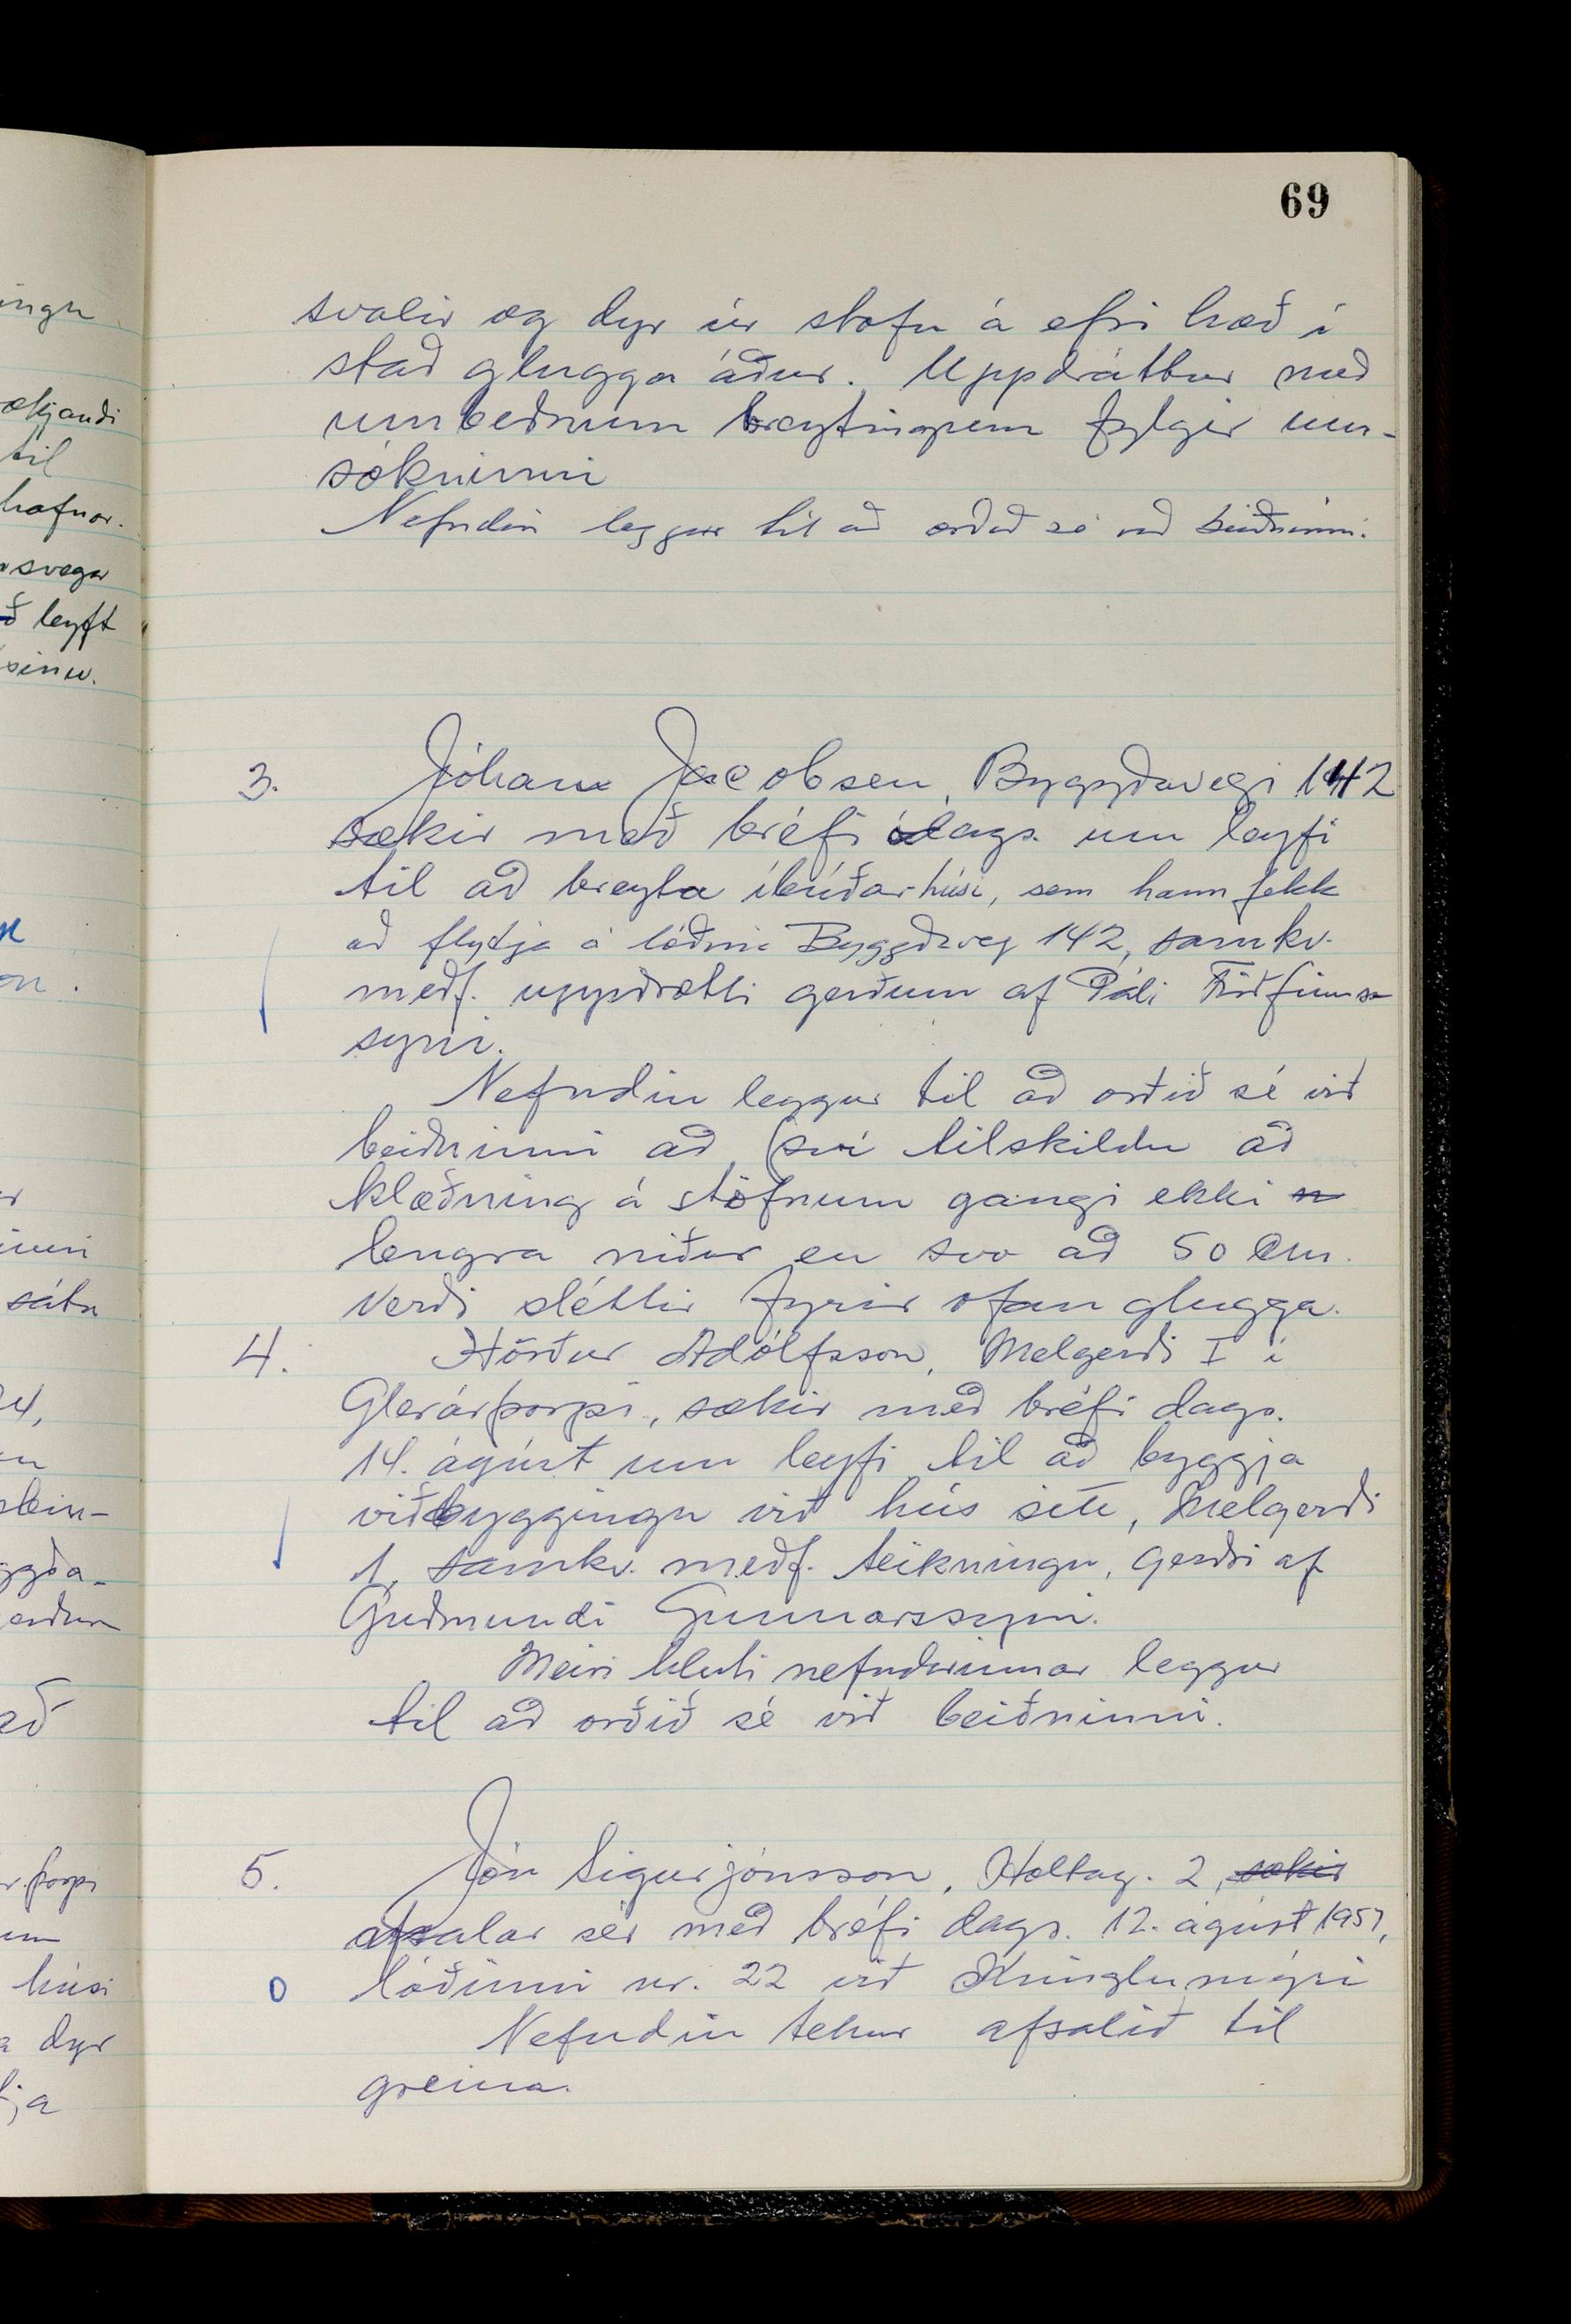 69
svalir og dyr úr stofu á efri hæð í
stað glugga áður. Uppdráttur með
umbeðnum breytingum fylgir um-
sókninni
Nefndin leggur til að orðið sé við beiðninni.
3. Jóhann Jacobsen, Byggðavegi 142
sækir með bréfi ódags. um leyfi
til að breyta íbúðarhúsi, sem hann fekk
að flytja á lóðina Byggðaveg 142, samkv.
meðf. uppdrætti gerðum af Páli Friðfinns
syni.
Nefndin leggur til að orðið sé við
beiðninni að því tilskildu að
klæðning á stöfnum gangi ekki
lengra niður en svo að 50 cm.
verði sléttir fyrir ofan glugga.
4. Hörður Adólfsson, Melgerði I í
Glerárþorpi, sækir með bréfi dags.
14. ágúst um leyfi til að byggja
viðbyggingu við hús sitt, Melgerði
1, samkv. meðf. teikningu, gerðri af
Guðmundi Gunnarssyni.
Meiri hluti nefndarinnar leggur
til að orðið sé við beiðninni.
5. Jón Sigurjónsson, Holtag. 2, sækir
afsalar sér með bréfi dags. 12. ágúst 1957,
0 lóðinni nr. 22 við Kringlumýri
Nefndin tekur afsalið til
greina.
ingu
ækjandi
til
hafnar.
svegar
ð leyft
sinu.
on.
inni
sátu
24,
stein-
ggða-
erðum
að
þorpi
um
húsi
a dyr
tja